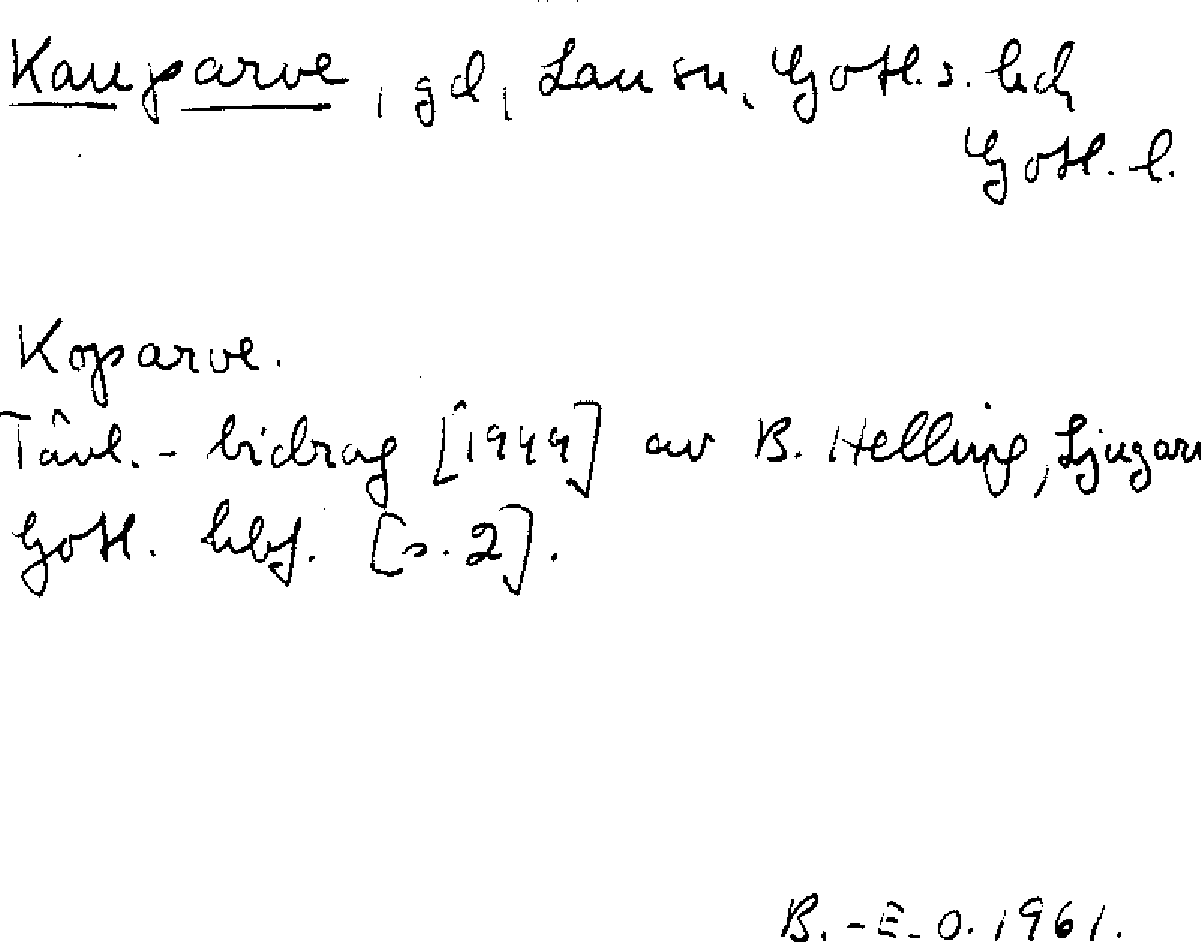 Kauparve, gd, Lau sn, Gotl. s. hd,
Gotl. l.
Koparve.
Tävl.-bidrag [1949] av B. Helling, Ljugarn
Gotl. hbf. [s. 2].
B.-E. O. 1961.